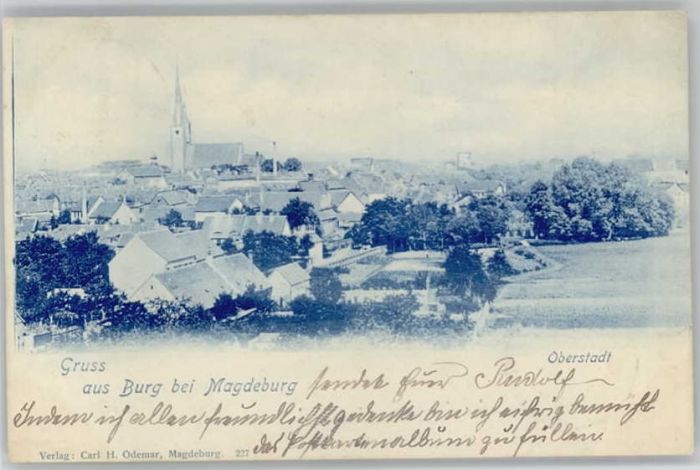 Oberstadt
Gruss
aus Burg bei Magdeburg sendet Euer Rudolf
Indem ich allen freundlichst gedenke bin ich eifrig bemüht
das Postkartenalbum zu füllen.
Verlag: Carl H. Odemar, Magdeburg. 227